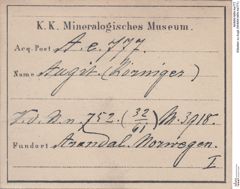 K. K. Mineralogisches Museum.
Acq. Post A. c. 777.
Name Augit (Körniger)
V. d. M. n. 752. (32/61) M. 3918.
Fundort Arendal. Norwegen.
I